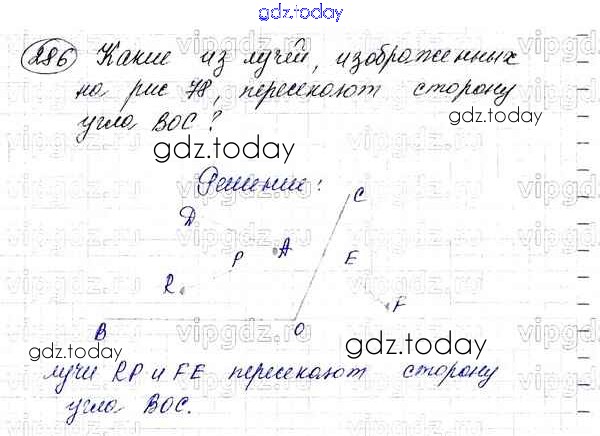 gdz.today
286 Какие из лучей, изображенных
на рис 78, пересекают сторону
угла ВОС?
gdz.today
Решение:
C
D
P A E
R
F
B O
gdz.today
gdz.today
лучи RP и FE пересекают сторону
угла ВОС.
gdz.today